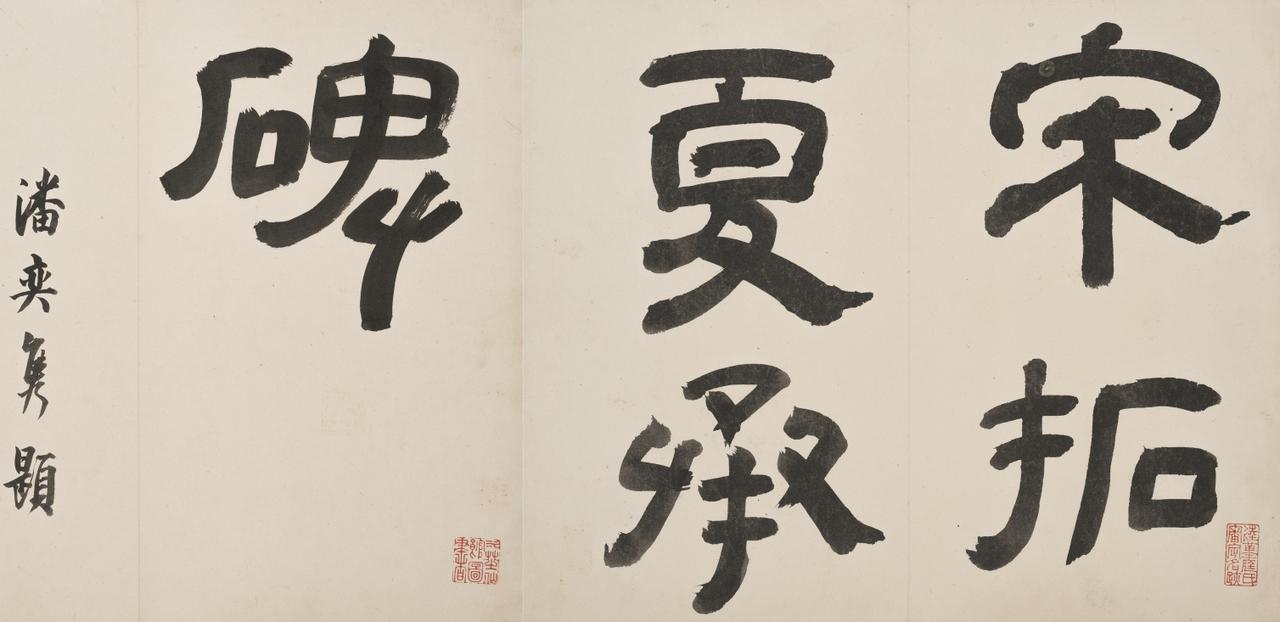 宋拓
夏承
碑
潘奕雋題